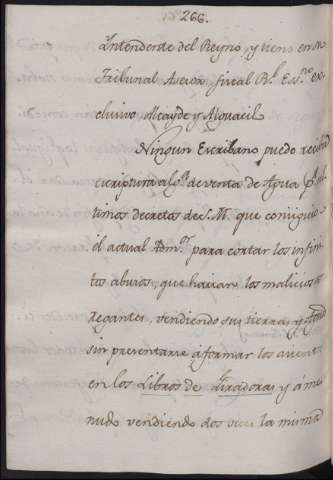 266.
Intendente del Reyno, y tiene en su
Tribunal Asesor, fiscal R.l Ess.no ex-
clusivo Alcayde y Alguacil
Ningun Escribano puede recibir
escriptura alg.a de venta de Agua p.r ul-
timos decretos de S. M. que consiguio
el actual Adm.or para cortar los infini-
tos abusos, que hacian los maliciosos
regantes, vendiendo sus tierras, y Agua
sin presentarse a formar los asient.s
en los Libros de
y á me-
nudo vendiendo dos veces la misma